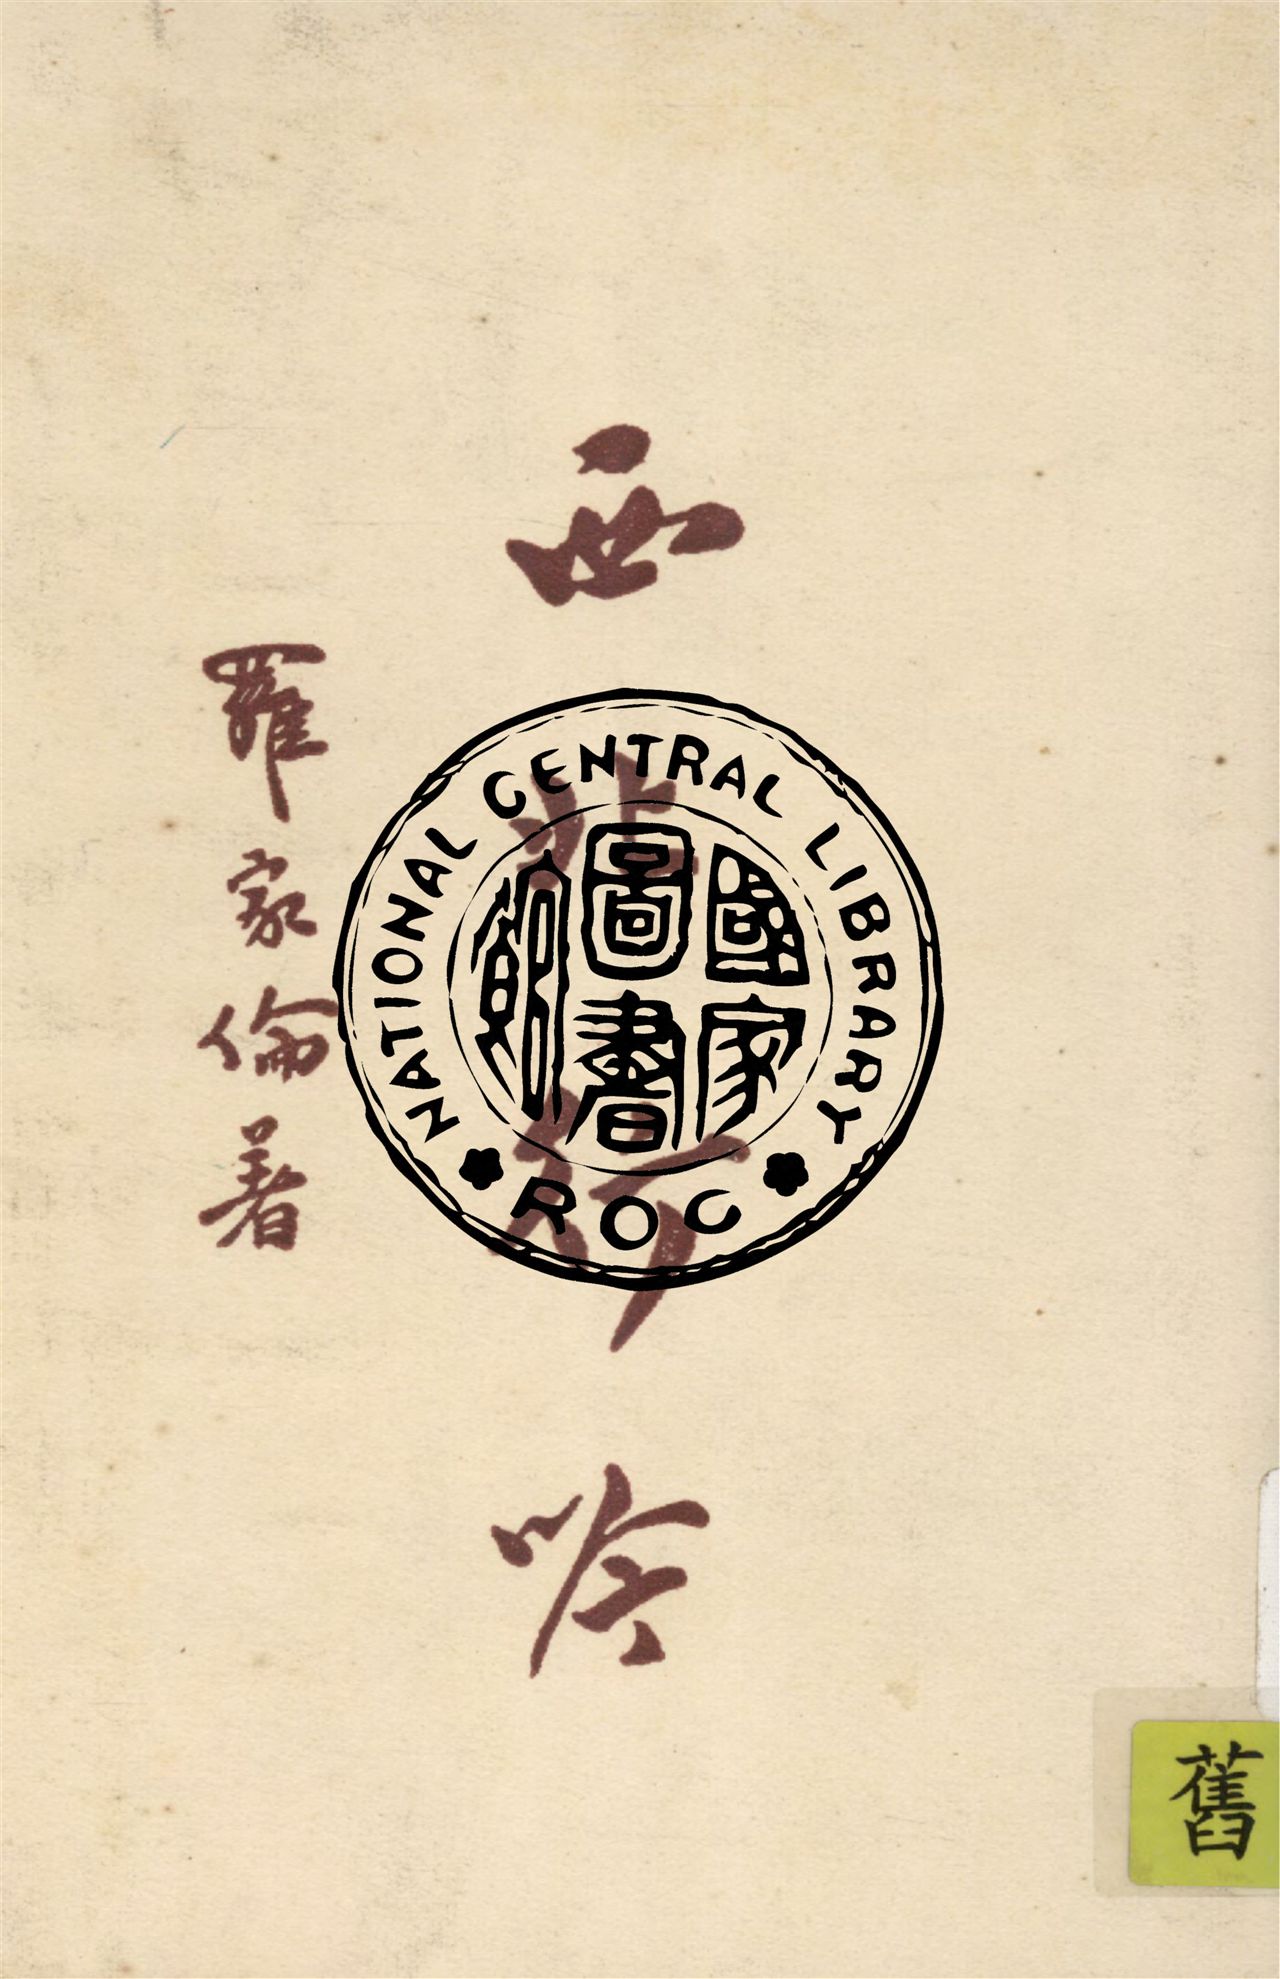 西北行吟
羅家倫著
NATIONAL CENTRAL LIBRARY
國家
圖書
館
ROC
舊